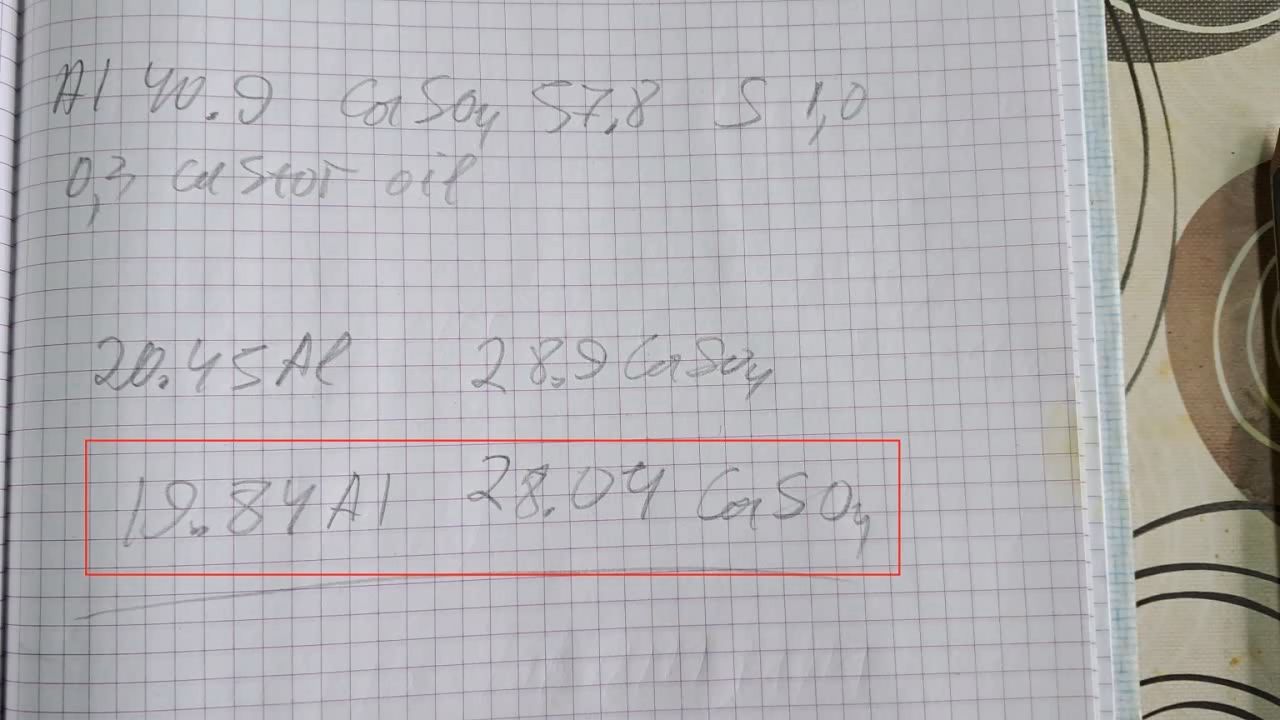 Al 40.9 CaSO4 57,8 S 1,0
0,3 castor oil
20.45 Al 28.9 CaSO4
19.84 Al 28.04 CaSO4